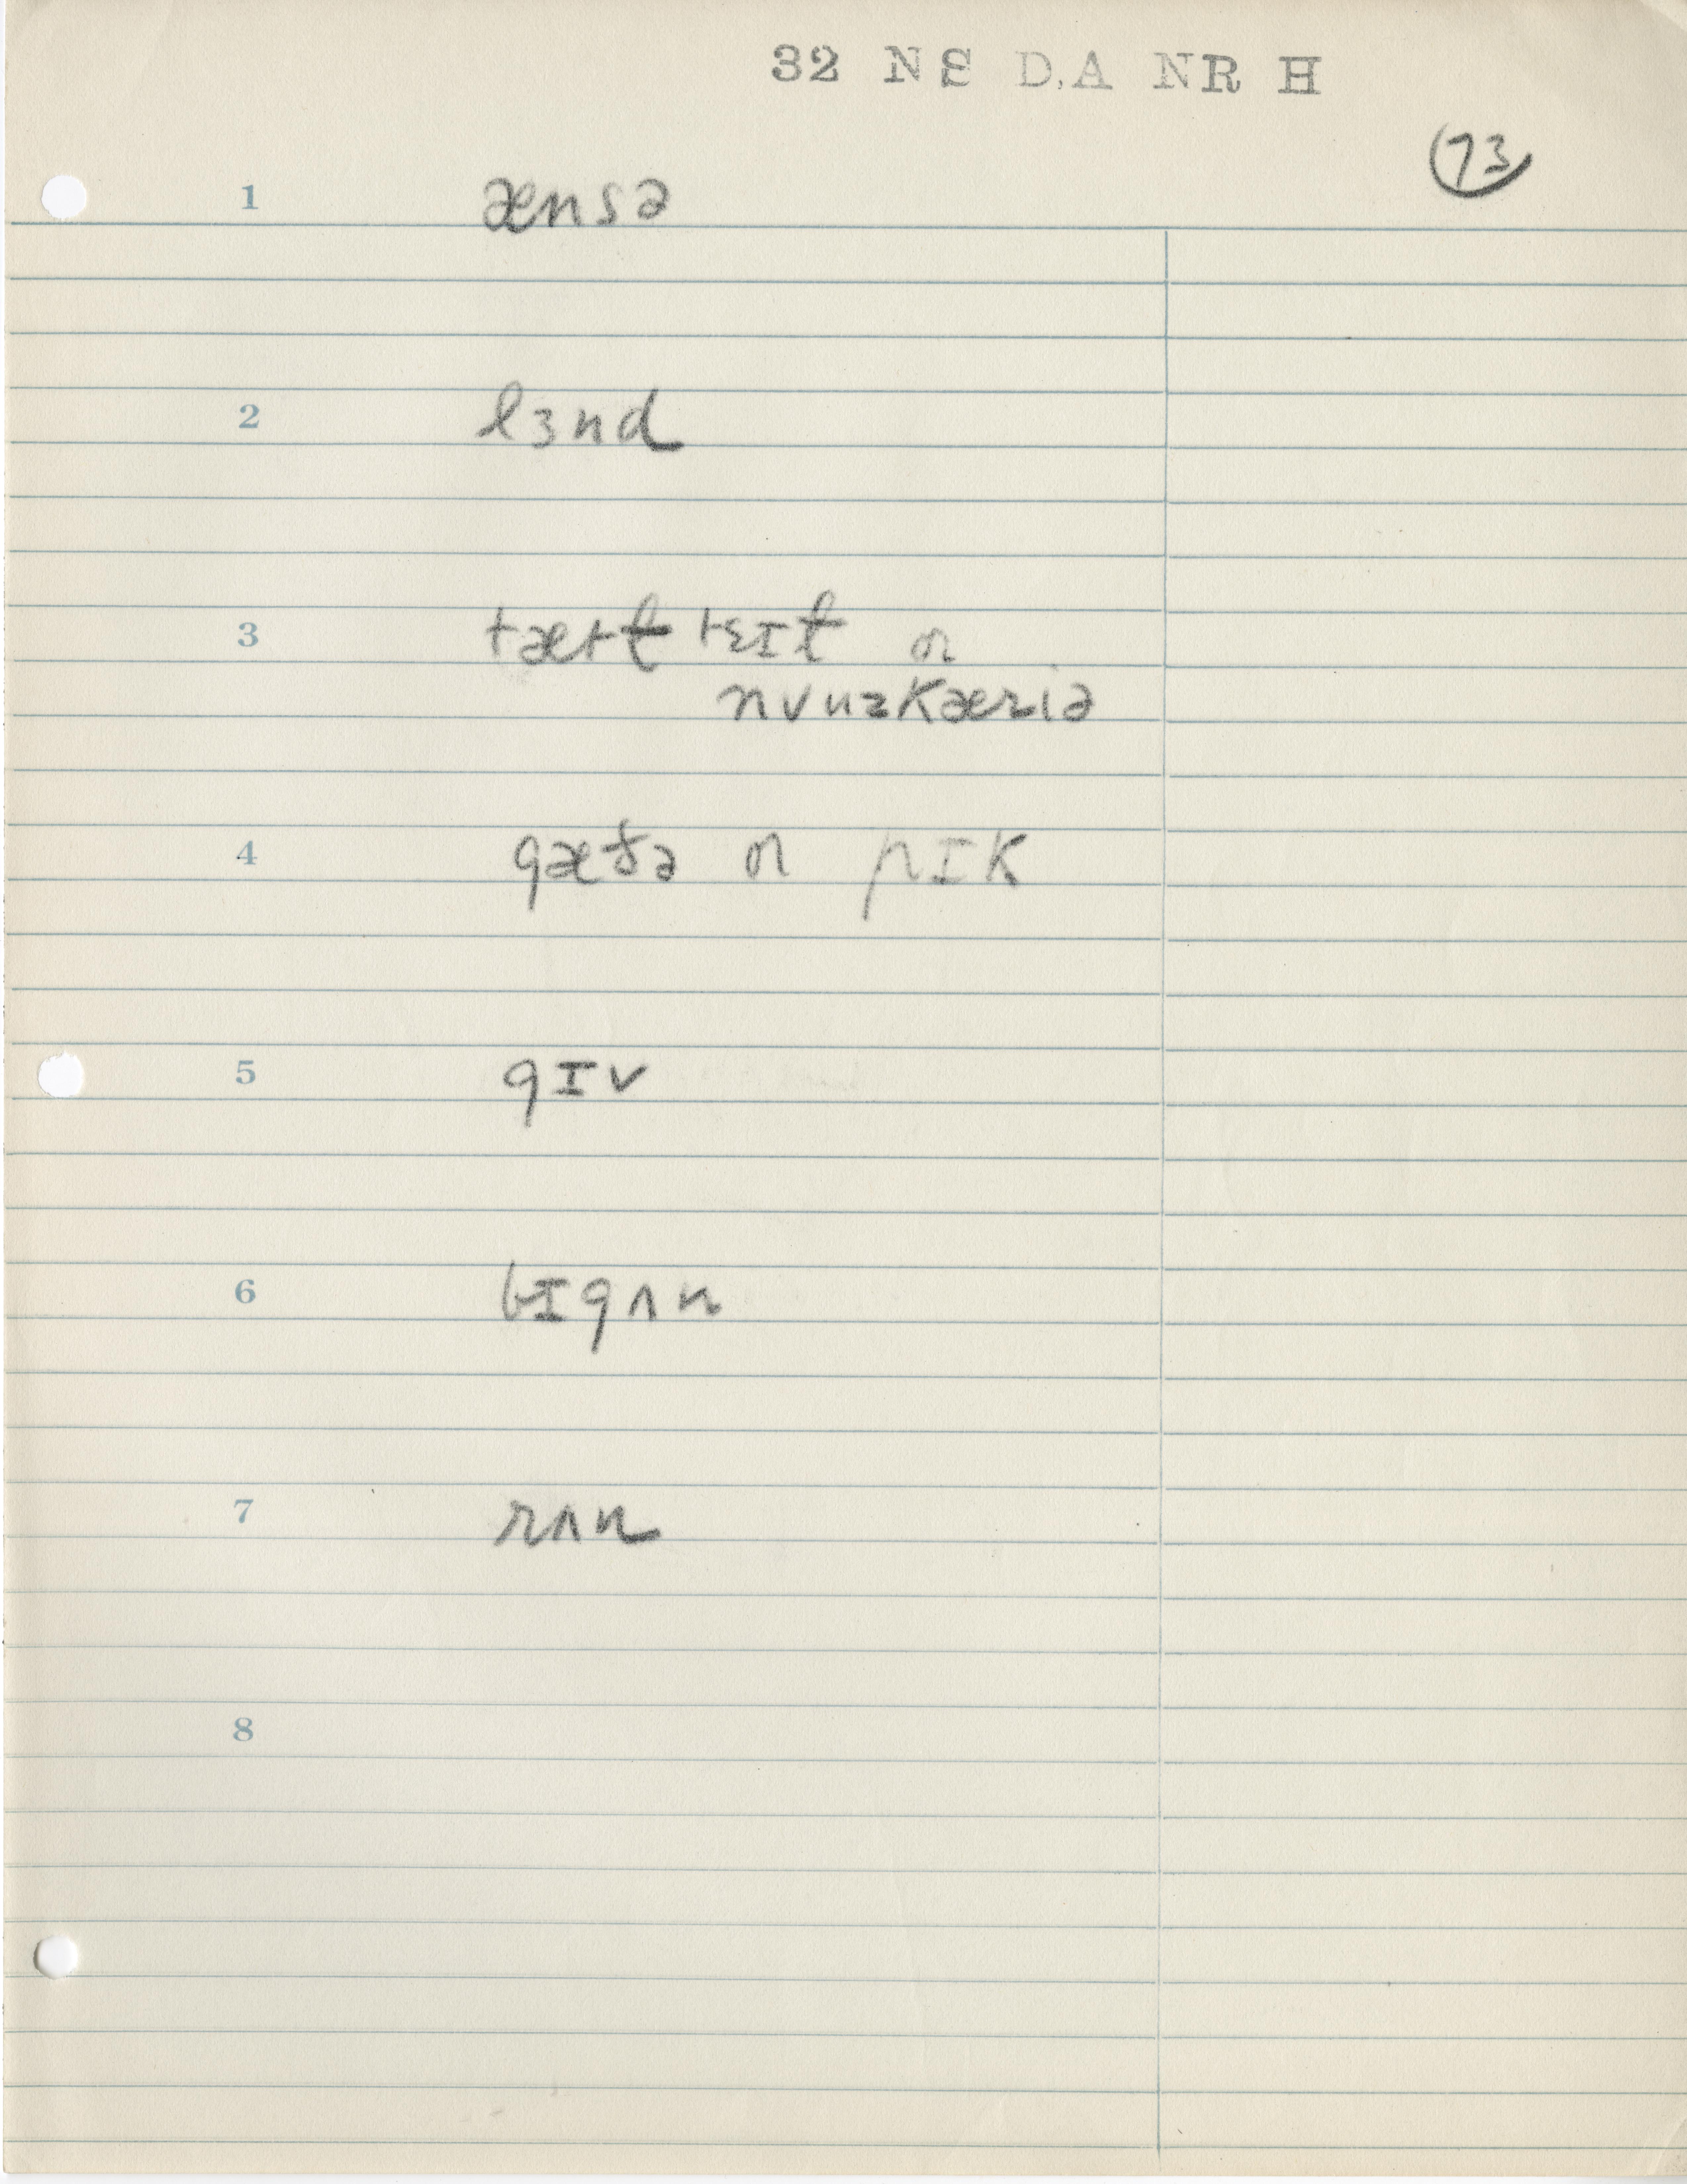 32 NS D.A NR H
73
1 ænsə
2 lɜnd
3 tɛɪt or
nvuzkæriə
4 gæðə or pɪk
5 gɪv
6 bɪgʌn
7 rʌn
8